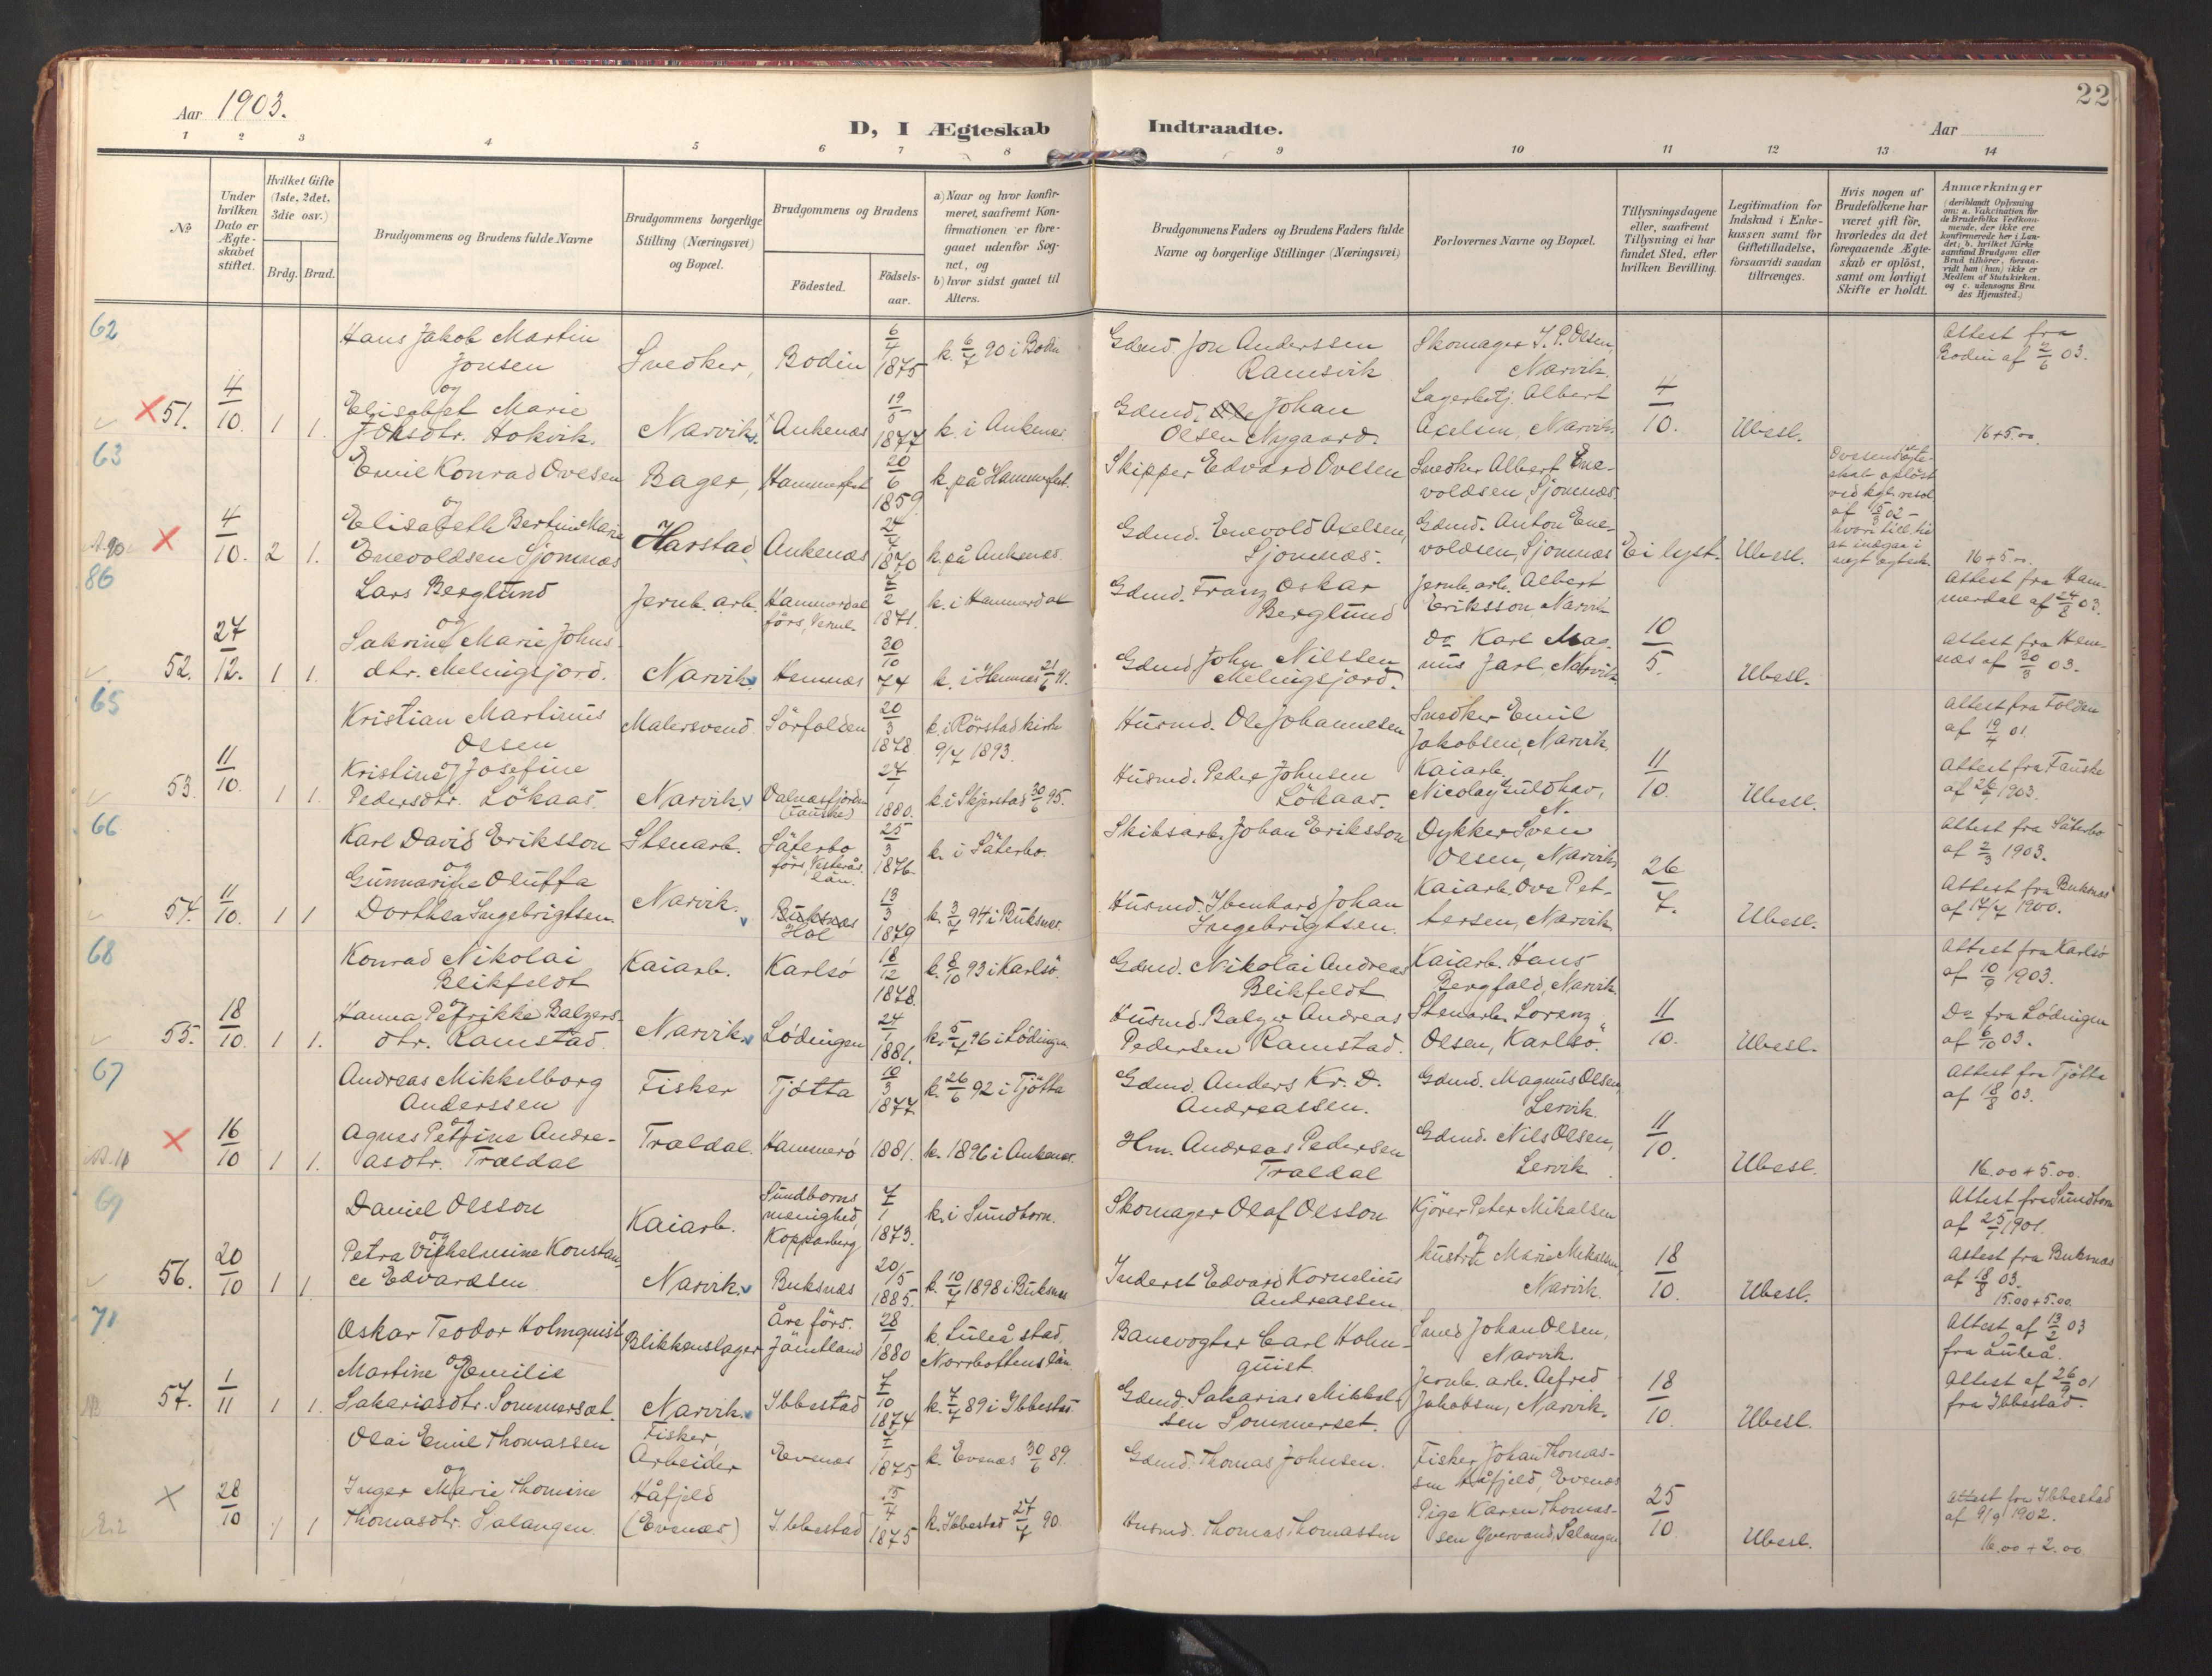 Aar 1903.
D, I Ægteskab Indtraadte.
Aar
22
1 2 3 4 5 6 7 8 9 10 11 12 13 14
No
Under hvilken Dato er Ægteskabet stiftet.
Hvilket Gifte (1ste, 2det, 3die osv.)
Brdg. Brud.
Brudgommens og Brudens fulde Navne
Brudgommens borgerlige Stilling (Næringsvei) og Bopæl.
Brudgommens og Brudens
Fødested. Fødselsaar.
a) Naar og hvor konfirmeret, saafremt Konfirmationen er foregaaet udenfor Sognet, og
b) hvor sidst gaaet til Alters.
Brudgommens Faders og Brudens Faders fulde Navne og borgerlige Stillinger (Næringsvei)
Forlovernes Navne og Bopæl.
Tillysningsdagene eller, saafremt Tillysning ei har fundet Sted, efter hvilken Bevilling.
Legitimation for Indskud i Enkekassen samt for Giftetilladelse, forsaavidt saadan tiltrænges.
Hvis nogen af Brudefolkene har været gift før, hvorledes da det foregaaende Ægteskab er opløst, samt om lovligt Skifte er holdt.
Anmærkninger (deriblandt Oplysning om: a. Vakcination for de Brudefolks Vedkommende, der ikke ere konfirmerede her i Landet; b. hvilket Kirkesamfund Brudgom eller Brud tilhører, forsaavidt han (hun) ikke er Medlem af Statskirken, og c. udensogns Brudes Hjemsted.)
62
Hans Jakob Martin Jonsen Snedker, Bodin 6/4 1875 k. 6/7 90 i Bodin Gdmd. Jon Anderssen Ramsvik Skomager I. P. Olsen, Narvik. Attest fra Bodin af 2/6 03.
og
51. 4/10. 1 1. Elisabet Marie Johsdtr. Hokvik. Narvik. Ankenæs 19/5 1877 k. i Ankenæs Gdmd. Johan Olsen Nygaard. Lagerbetj. Albert Axelsen, Narvik. 4/10. Ubesl. 16+5.00
63
Emil Konrad Ovesen Bager, Hammerfest 20/6 1859 k. på Hammerfest. Skipper Edvard Ovesen Snedker Albert Enevoldsen, Sjomnæs
og
4/10. 2 1. Elisabeth Bertine Marie Enevoldsen Sjomnæs Harstad Ankenæs 24/4 1870 k. på Ankenæs. Gdmd. Enevold Axelsen, Sjomnæs. Gdmd. Anton Enevoldsen, Sjomnæs Ei lyst. Ubesl. 16+5.00
86
Lars Berglund Jernb. arb. Hammerdal förs, 2 1871. k. i Hammerdal Gdmd. Franz Oskar Berglund Jernb. arb. Albert Eriksson, Narvik Attest fra Hammerdal af 24/2 03.
og
52. 27/12. 1 1. Sakrine Marie Johnsdtr. Melingsfjord. Narvik Hemnæs 30/10 74 k. i Hemnæs 21/6 91. Gdmd. John Nilssen Melingsfjord. Do Karl Magnus Jarl, Narvik. 10/5. Ubesl. Attest fra Hemnæs af 30/3 03.
65
Kristian Martinus Olsen Malersvend Sörfolden 20/3 1878. k. i Rörstad kirke 9/7 1893. Husmd. Ole Johannesen Snedker Emil Jakobsen, Narvik. Attest fra Folden af 19/4 01.
og
53. 11/10. 1 1. Kristine Josefine Pedersdtr. Lökaas. Narvik Valnæsfjorden (Fauske) 27/1 1880. k. i Skjerstad 30/6 95. Husmd. Peder Johnsen Lökaas. Kaiarb. Nicolay Guldhav, N. 11/10. Ubesl. Attest fra Fauske af 26/7 1903.
66
Karl David Eriksson Stenarb. Säterbo förs, Vesterås län. 25/3 1876. k. i Säterbo. Skibsarb. Johan Eriksson Dykker Sven Olsen, Narvik Attest fra Säterbo af 2/3 1903.
og
54. 11/10. 1 1 Gunnarine Oluffa Dorthea Ingebrigtsen. Narvik. Buksnæs Hol 13/3 1879 k. 3/7 94 i Buksnæs. Husmd. Ibenhard Johan Ingebrigtsen. Kaiarb. Ove Pettersen, Narvik. 26/7. Ubesl. Attest fra Buksnæs af 17/7 1900.
68
Konrad Nikolai Blikfeldt Kaiarb. Karlsö 18/12 1878 k. 8/10 93 i Karlsö. Gdmd. Nikolai Andreas Blikfeldt Kaiarb. Hans Bergfald, Narvik. Attest fra Karlsö af 10/9 1903.
og
55. 18/10. 1 1. Hanna Petrikke Balzersdtr. Ramstad. Narvik Lödingen 24/1 1881. k. 5/7 96 i Lödingen Husmd. Balzer Andreas Pedersen Ramstad. Stenarb. Lorenz Olsen, Karlsö. 11/10. Ubesl. Do fra Lödingen af 6/10 03.
67
Andreas Mikkelborg Anderssen Fisker Tjötta 10/3 1877 k. 26/6 92 i Tjötta Gdmd. Anders Kr. D. Andreassen. Gdmd. Magnus Olsen, Lervik. Attest fra Tjötta af 18/8 03.
og
16/10 1 1. Agnes Petrine Andreasdtr. Traldal Traldal. Hammerö 1881. k. 1896 i Ankenæs. Hm. Andreas Pedersen Traldal Gdmd. Nils Olsen, Lervik 11/10. Ubesl. 16.00+5.00.
69
Daniel Olsson Kaiarb. Sundborns menighed, Kopparberg 7/1 1873. k. i Sundborn. Skomager Olaf Olsson Kjörer Peter Mikalsen Attest fra Sundborn af 25/7 1901.
og
56. 20/10 1 1. Petra Vilhelmine Konstance Edvardsen. Narvik. Buksnæs 20/5 1885. k. 10/7 1898 i Buksnæs Inderst Edvard Kornelius Andreassen. og hustru Marie Mikalsen, Narvik. 18/10. Ubesl. Attest fra Buksnæs af 18/8 03. 15.00+5.00
71
Oskar Teodor Holmquist Blikkenslager Åre förs. Jämtland 28/1 1880 k. Luleå stad, Norrbottens län. Banevogter Carl Holmquist. Smed Johan Olsen, Narvik. Attest af 13/2 03 fra Luleå.
og
57. 1/11 1 1. Martine Emilie Sakariasdtr. Sommerset. Narvik. Ibbestad 7/10 1874 k. 7/7 89 i Ibbestad Gdmd. Sakarias Mikkelsen Sommerset. Jernb. arb. Alfred Jakobsen, Narvik. 18/10. Ubesl. Attest af 26/9 01 fra Ibbestad.
Olai Emil Thomassen Fisker, Arbeider Evenæs 1875 k. Evenæs 30/6 89. Gdmd. Thomas Johnsen. Fisker Johan Thomassen Håfjeld, Evenæs
og
28/10 1 1 Inger Marie Thomine Thomasdtr. Salangen. Håfjeld (Evenæs) Ibbestad 1875 k. Ibbestad 27/7 90. Husmd. Thomas Thomassen Pige Karen Thomassen Salangen 25/10. Ubesl. Attest fra Ibbestad af 9/9 1902. 16.00+2.00